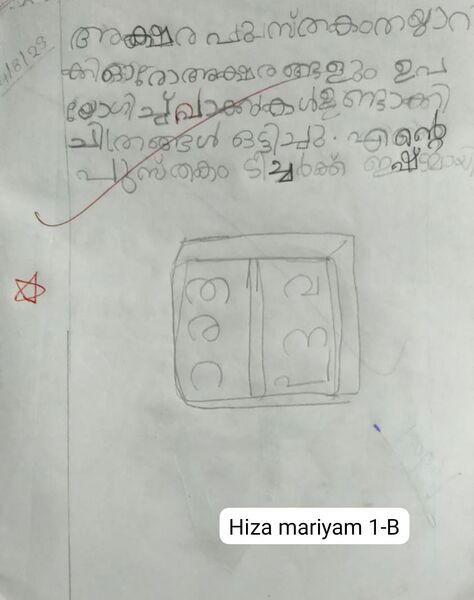 1/8/23
അക്ഷര പുസ്തകംതയ്യാറ
ക്കിഓരോഅക്ഷരങ്ങളും ഉപ
യോഗിച്ച് വാക്കുകൾഉണ്ടാക്കി
ചിത്രങ്ങൾ ഒട്ടിച്ചു. എൻ്റെ
പുസ്തകം ടീച്ചർക്ക് ഇഷ്ടമായി
ത വ
ര
റ
Hiza mariyam 1-B